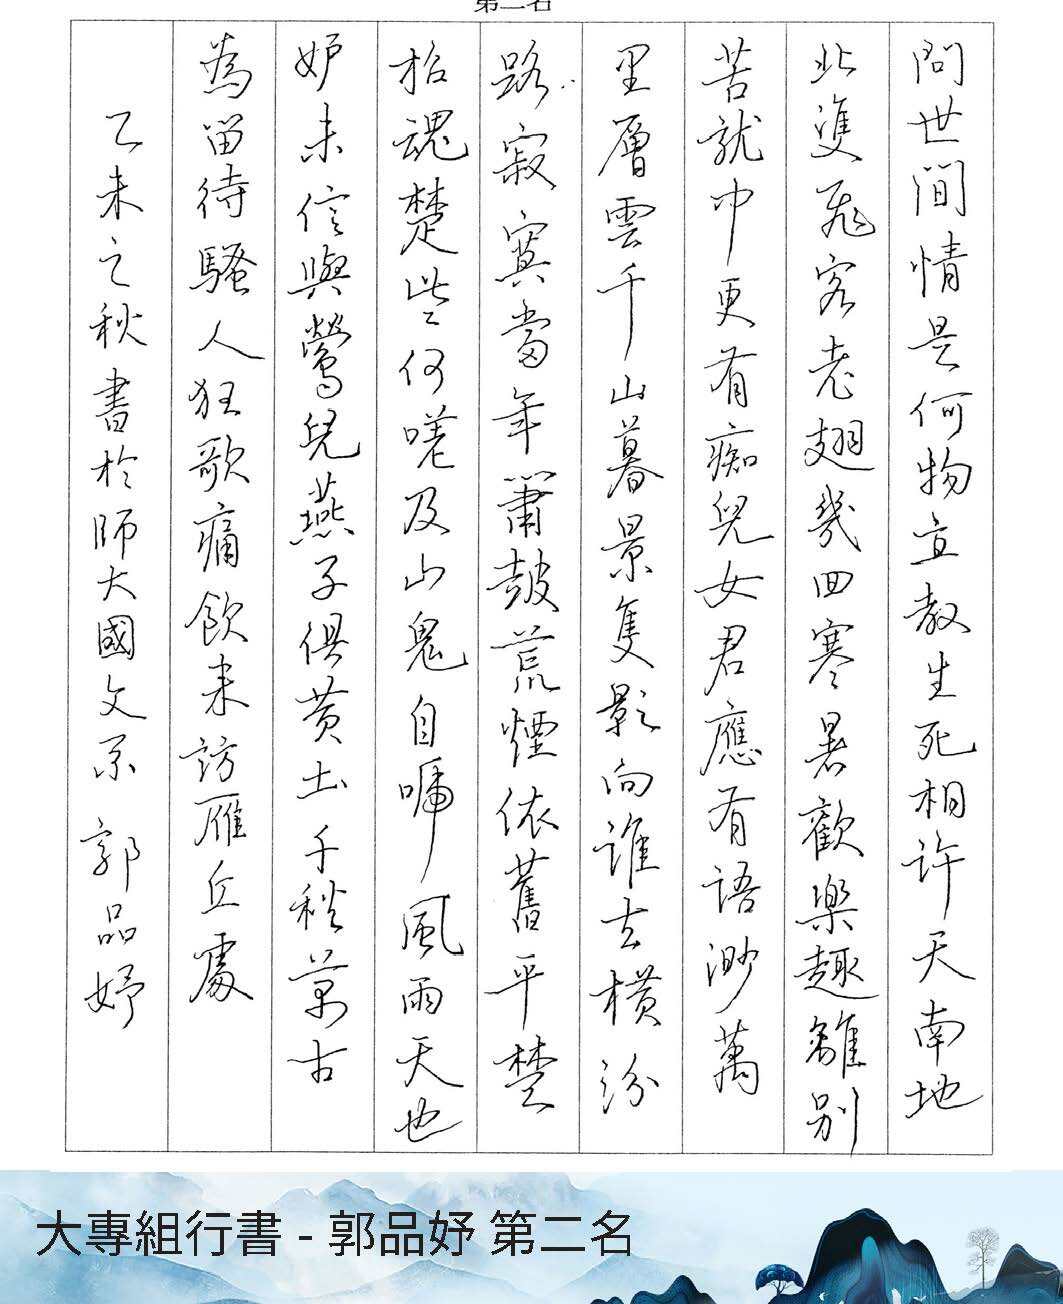 第二名
問世間情是何物直教生死相許天南地
北雙飛客老翅幾回寒暑歡樂趣離別
苦就中更有痴兒女君應有語渺萬
里層雲千山暮景隻影向誰去橫汾
路寂寞當年簫鼓荒煙依舊平楚
招魂楚些何嗟及山鬼自啼風雨天也
妒未信與鶯兒燕子俱黃土千秋萬古
為留待騷人狂歌痛飲來訪雁丘處
乙未之秋書於師大國文系 郭品妤
大專組行書 - 郭品妤 第二名